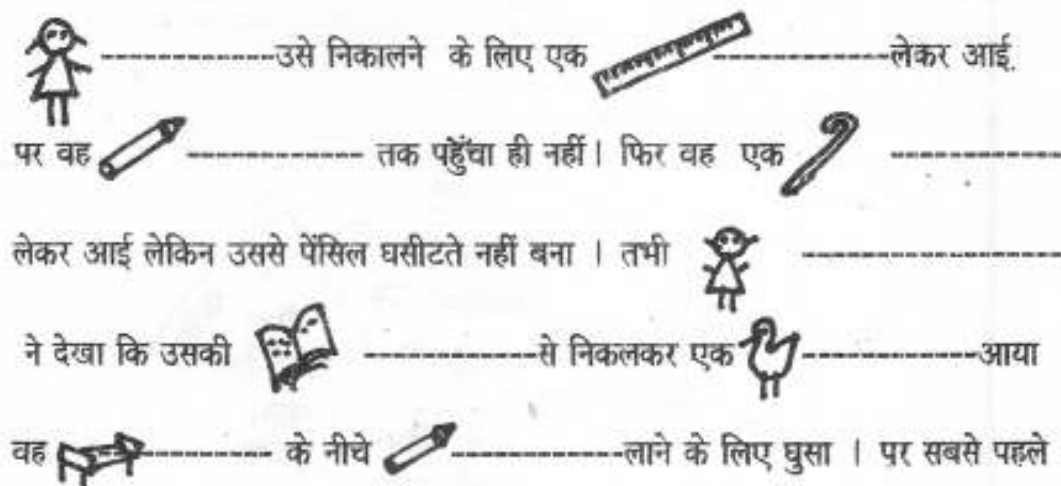 ------------उसे निकालने के लिए एक ------------लेकर आई.
पर वह ------------ तक पहुँचा ही नहीं। फिर वह एक ------------
लेकर आई लेकिन उससे पेंसिल घसीटते नहीं बना । तभी ------------
ने देखा कि उसकी ------------से निकलकर एक ------------आया
वह ------------ के नीचे ------------लाने के लिए घुसा । पर सबसे पहले